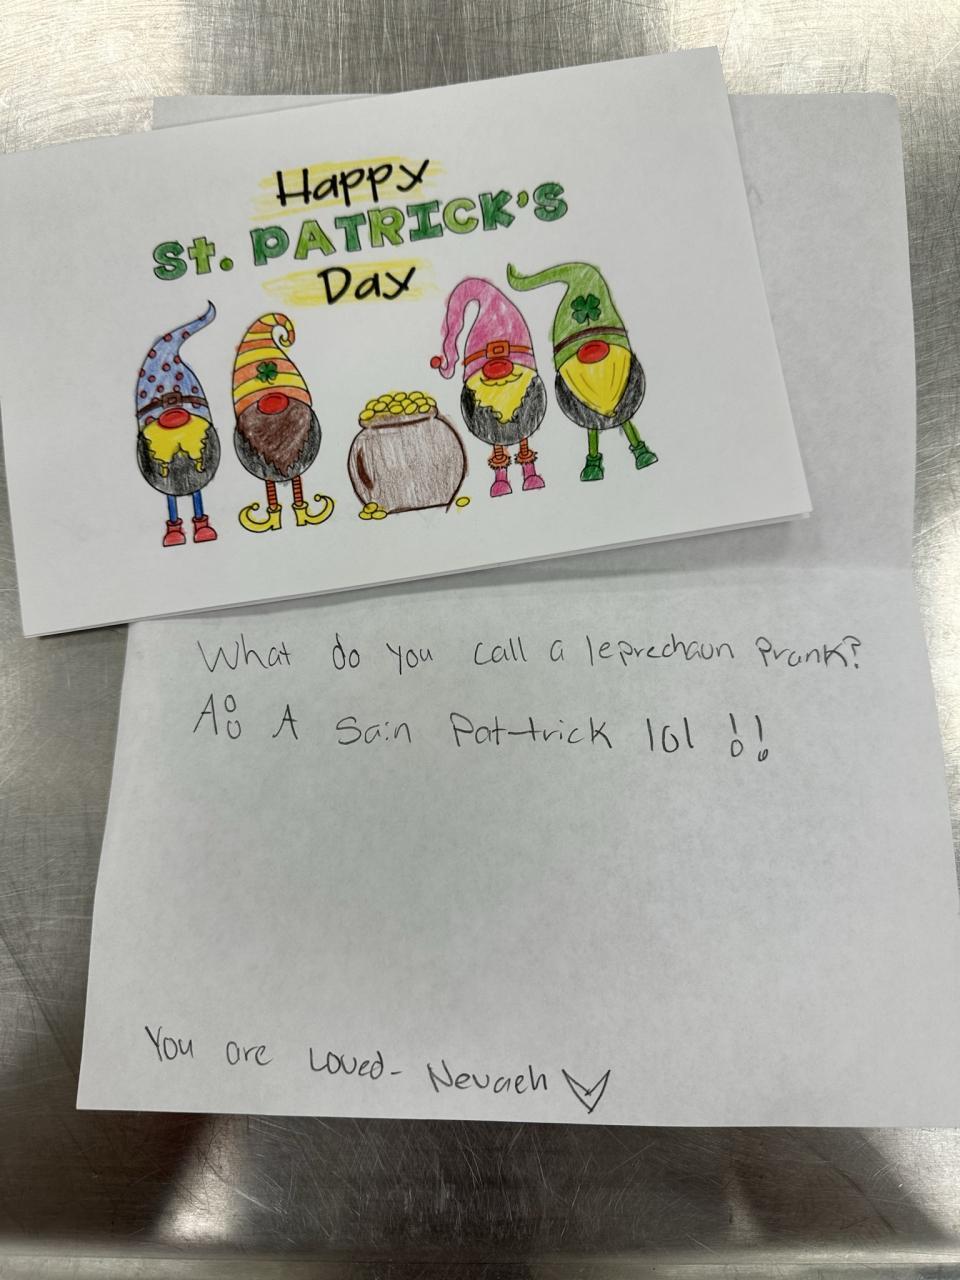 Happy
St. PATRICK'S
Day
What do you call a leprechaun Prank?
A: A Sain Pat-trick lol !!
You are Loved- Nevaeh